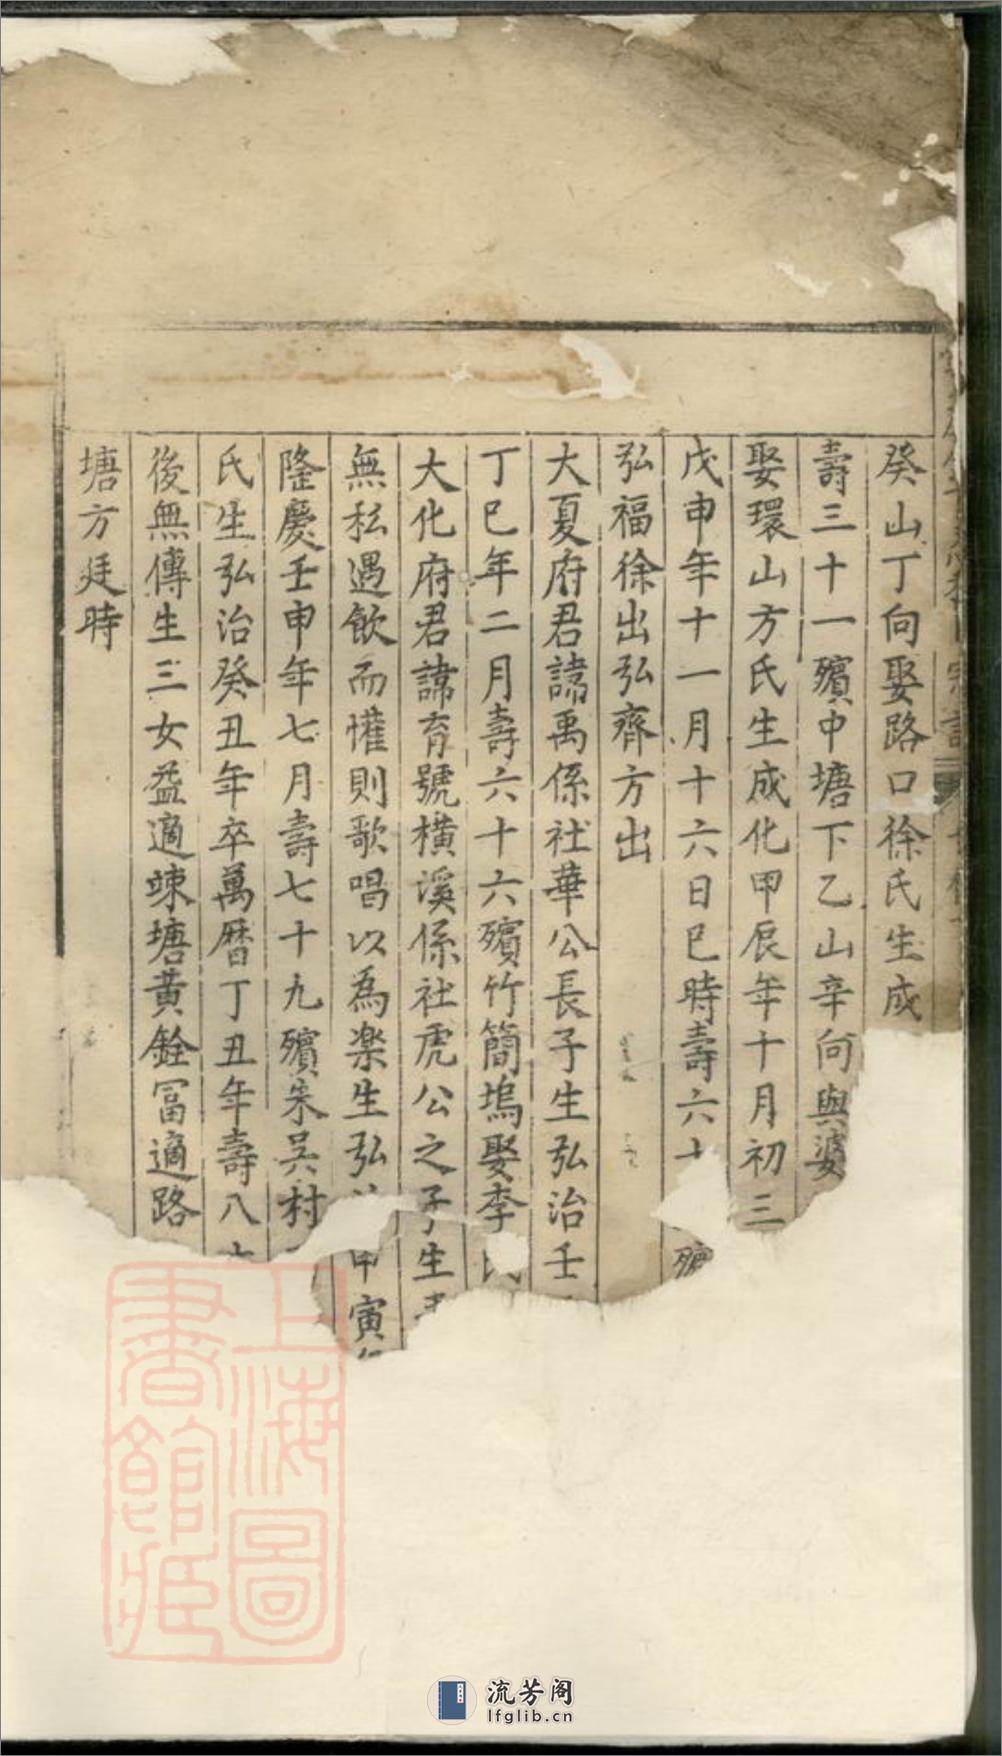 癸山丁向娶路口徐氏生成
壽三十一殯中塘下乙山辛向與婆
娶環山方氏生成化甲辰年十月初三
戊申年十一月十六日巳時壽六十殯
弘福徐出弘齊方出
大夏府君諱禹係社華公長子生弘治壬
丁巳年二月壽六十六殯竹簡塢娶李氏
大化府君諱育號橫溪係社虎公之子生
無私遇飲而懽則歌唱以為楽生弘甲寅
隆慶壬申年七月壽七十九殯朱吳村
氏生弘治癸丑年卒萬曆丁丑年壽八
後無傳生三女益適竦塘黃銓冨適路
塘方廷時
上海圖書館藏
流芳阁
lfglib.cn